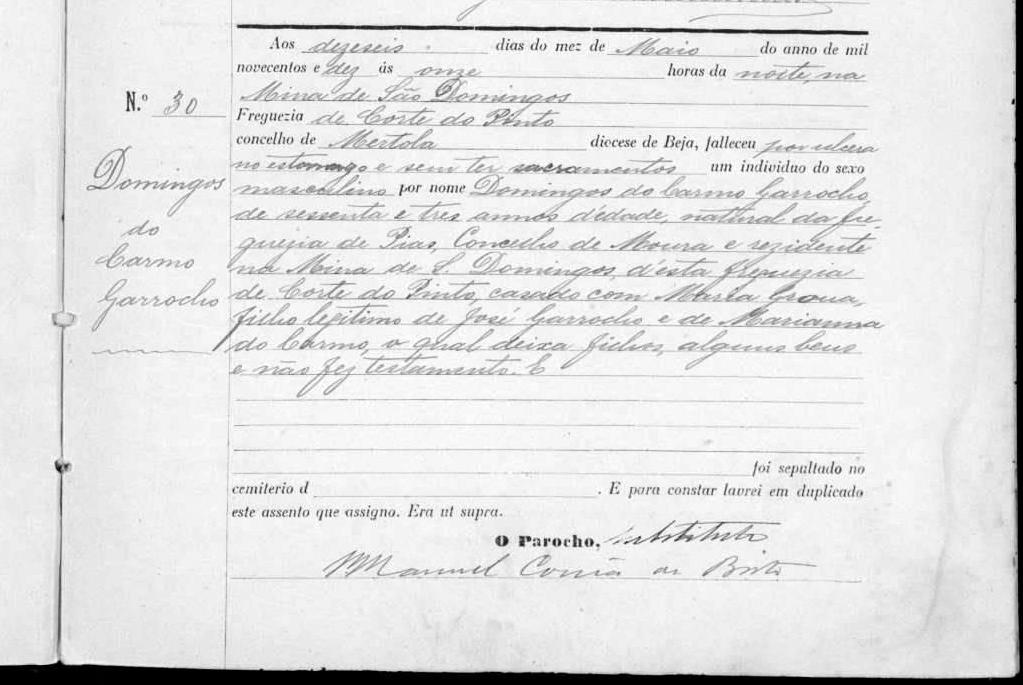 Aos dezeseis dias do mez de Maio do anno de mil
novecentos e dez ás onze horas da noite, na
Mina de São Domingos
N.º 30
Freguezia de Corte do Pinto
concelho de Mertola diocese de Beja, falleceu por ulcera
no estomago e sem ter sacramentos um individuo do sexo
masculino por nome Domingos do Carmo Garrocho,
Domingos
do
Carmo
Garrocho
de sessenta e tres annos d'edade, natural da fre-
guezia de Pias, Concelho de Moura e rezidente
na Mina de S. Domingos, d'esta freguezia
de Corte do Pinto, casado com Maria
filho legitimo de José Garrocho e de Marianna
do Carmo, o qual deixa filhos, alguns bens
e não fez testamento. E
foi sepultado no
cemiterio d . E para constar lavrei em duplicado
este assento que assigno. Era ut supra.
O Parocho, substituto
Manuel de Brito